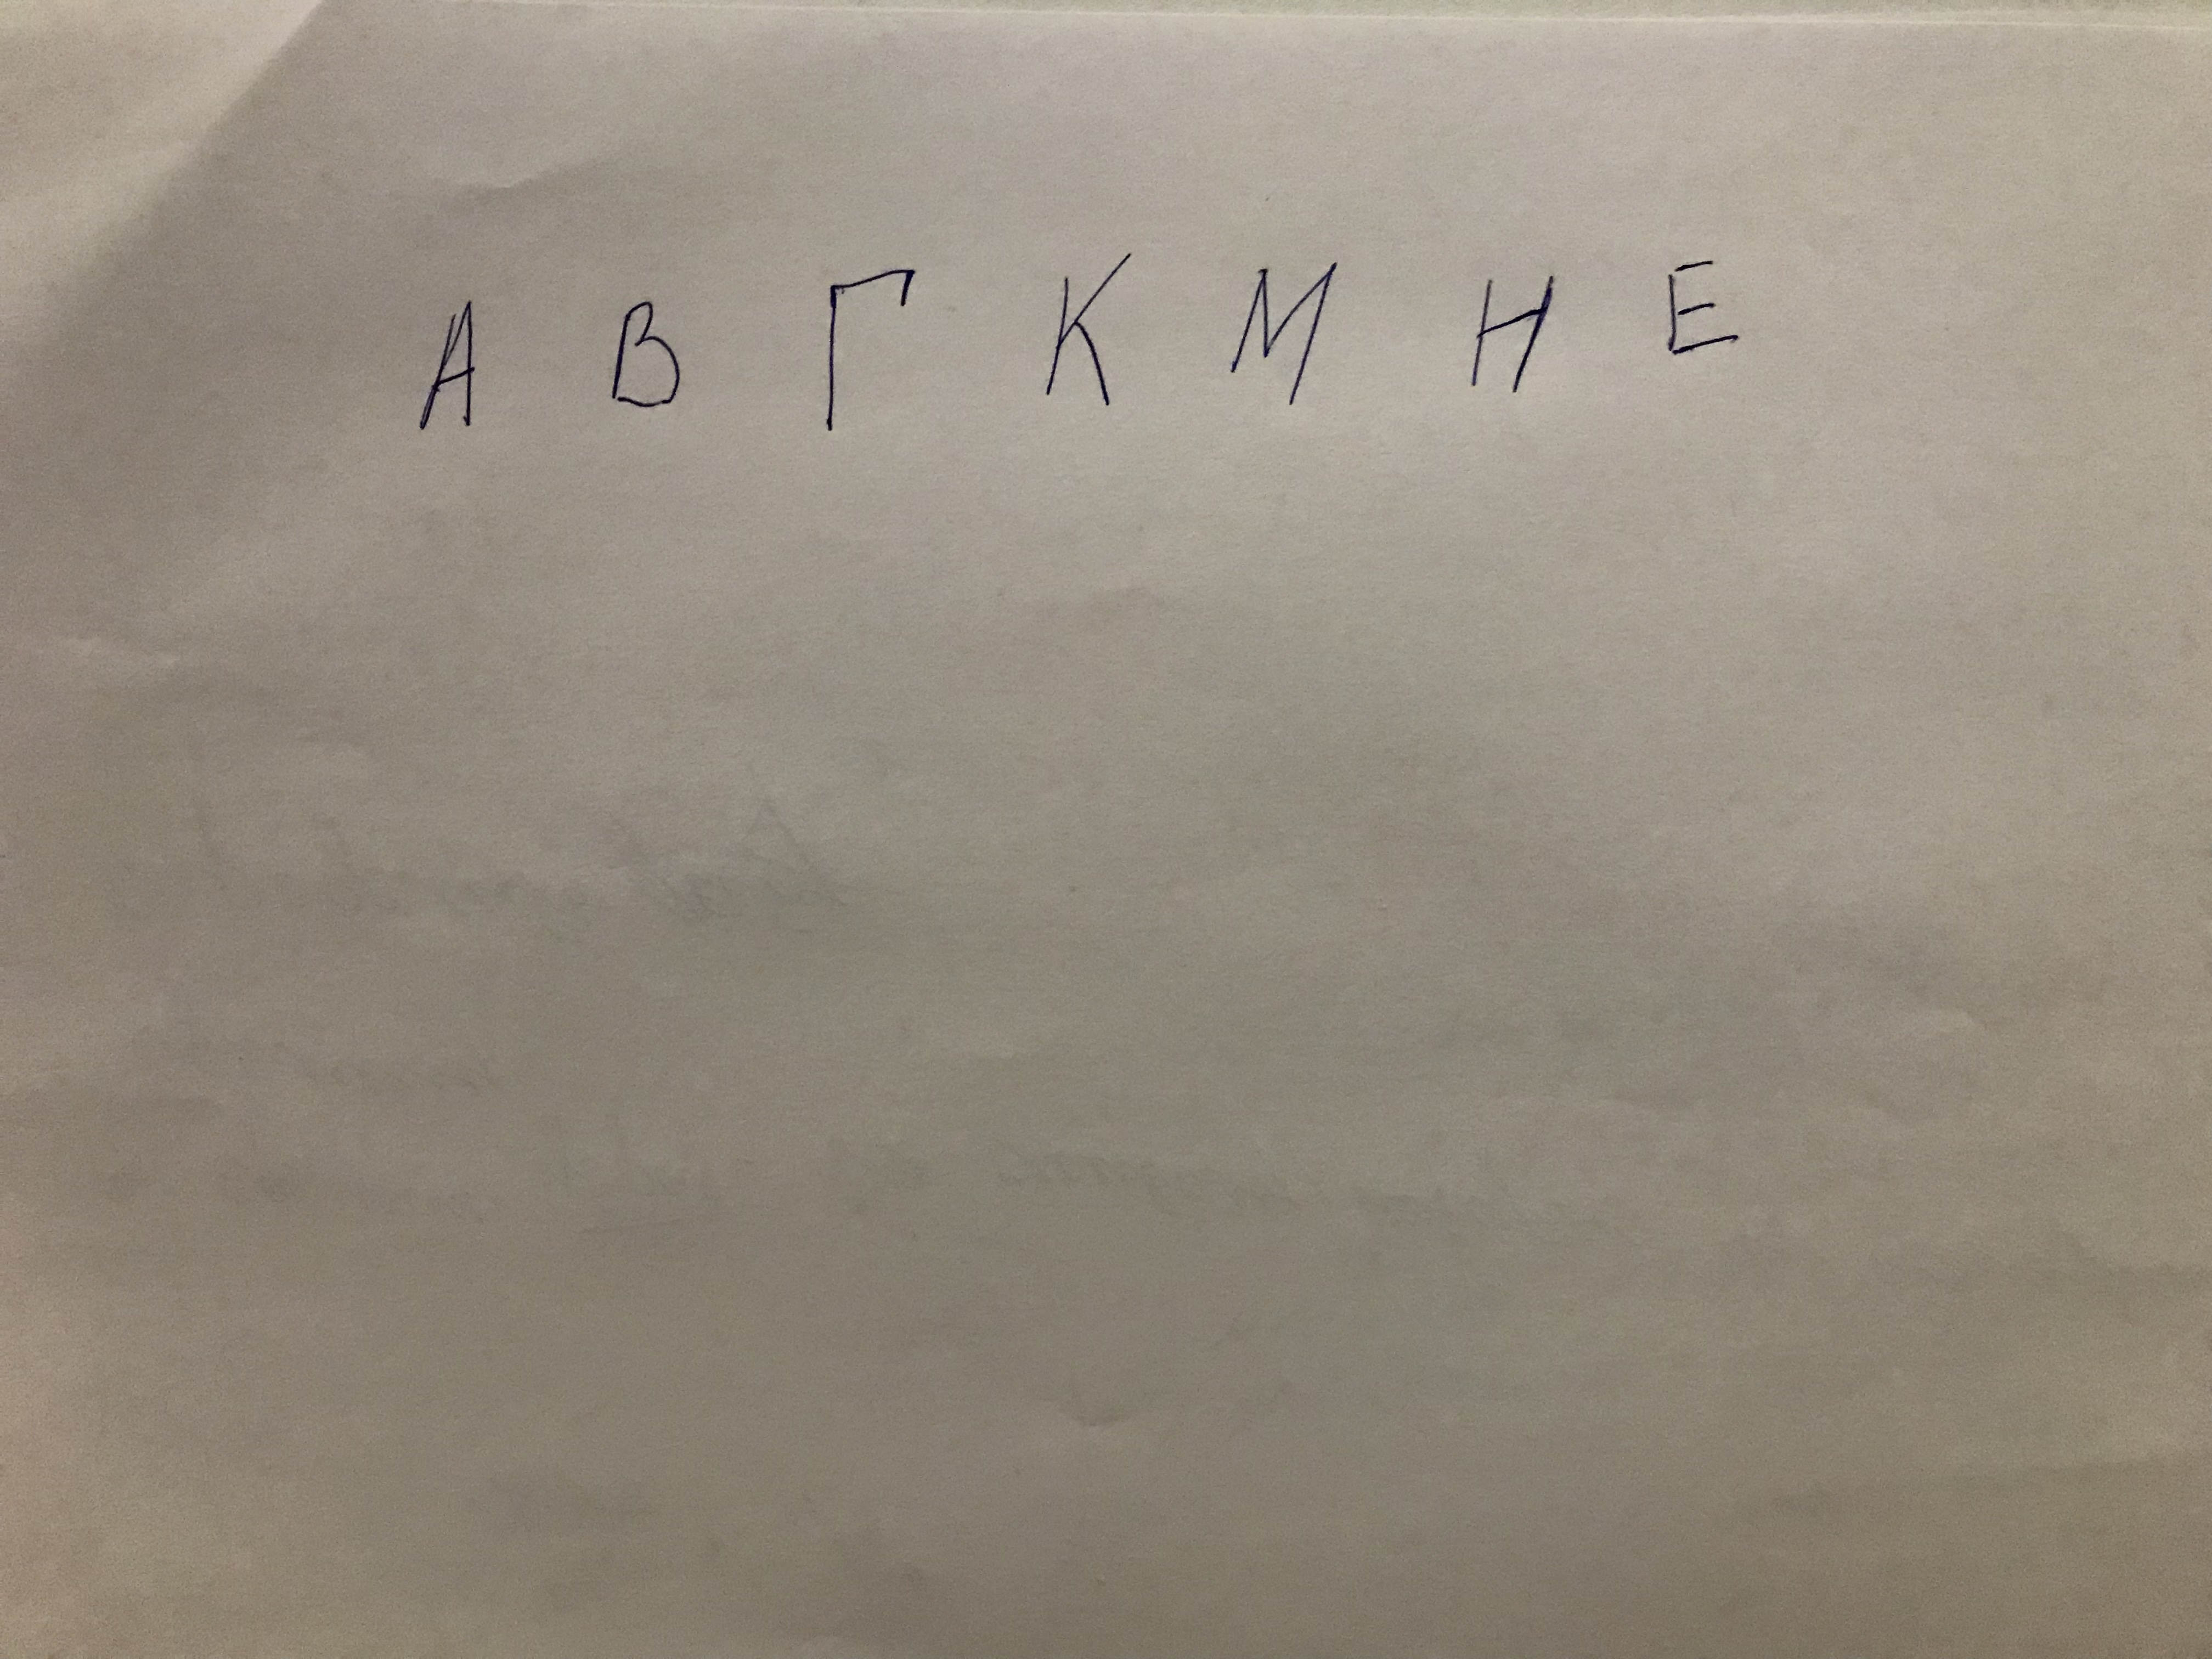 А В Г К М Н Е